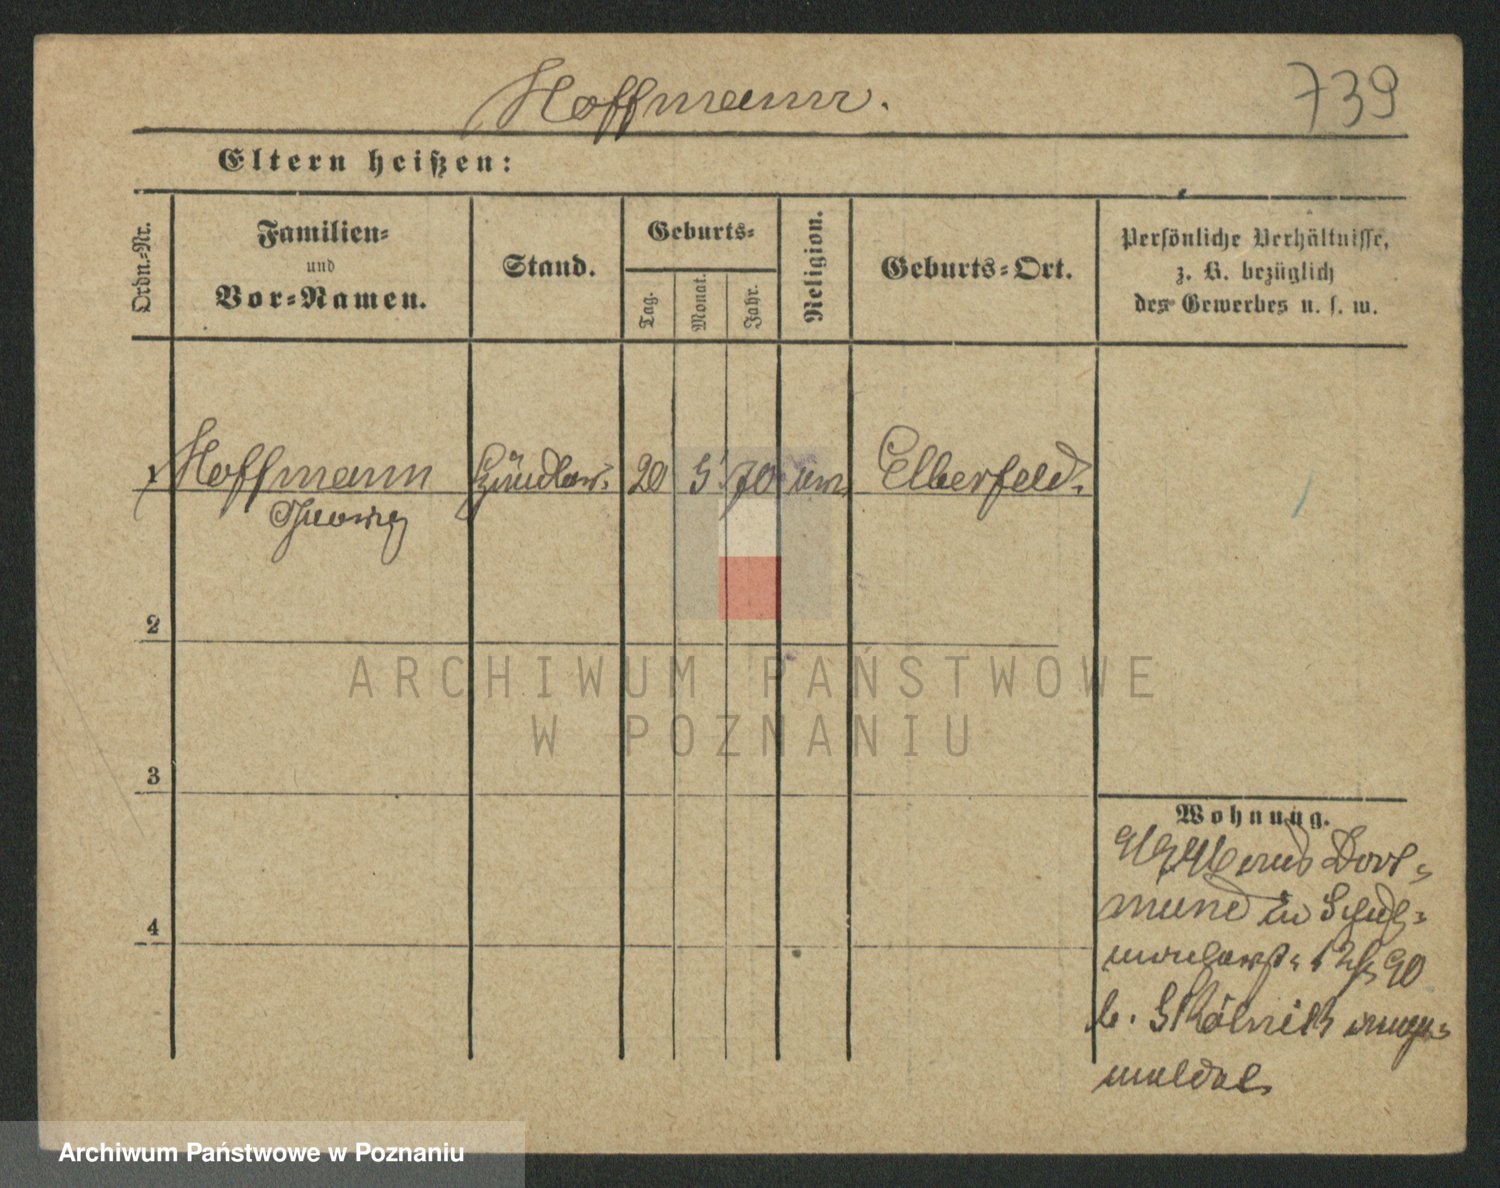 Hoffmann.
739
Eltern heißen:
Ordn.-Nr.
Familien-
und
Vor-Namen.
Stand.
Geburts-
Tag.
Monat.
Jahr.
Religion.
Geburts-Ort.
Persönliche Verhältnisse,
z. B. bezüglich
des Gewerbes u. s. w.
1 Hoffmann 20 5. 70 Elberfeld.
Georg
2
3
4
Wohnung.
aus Dort-
mund in
12/5 90
b.
meldet
ARCHIWUM PAŃSTWOWE
W POZNANIU
Archiwum Państwowe w Poznaniu